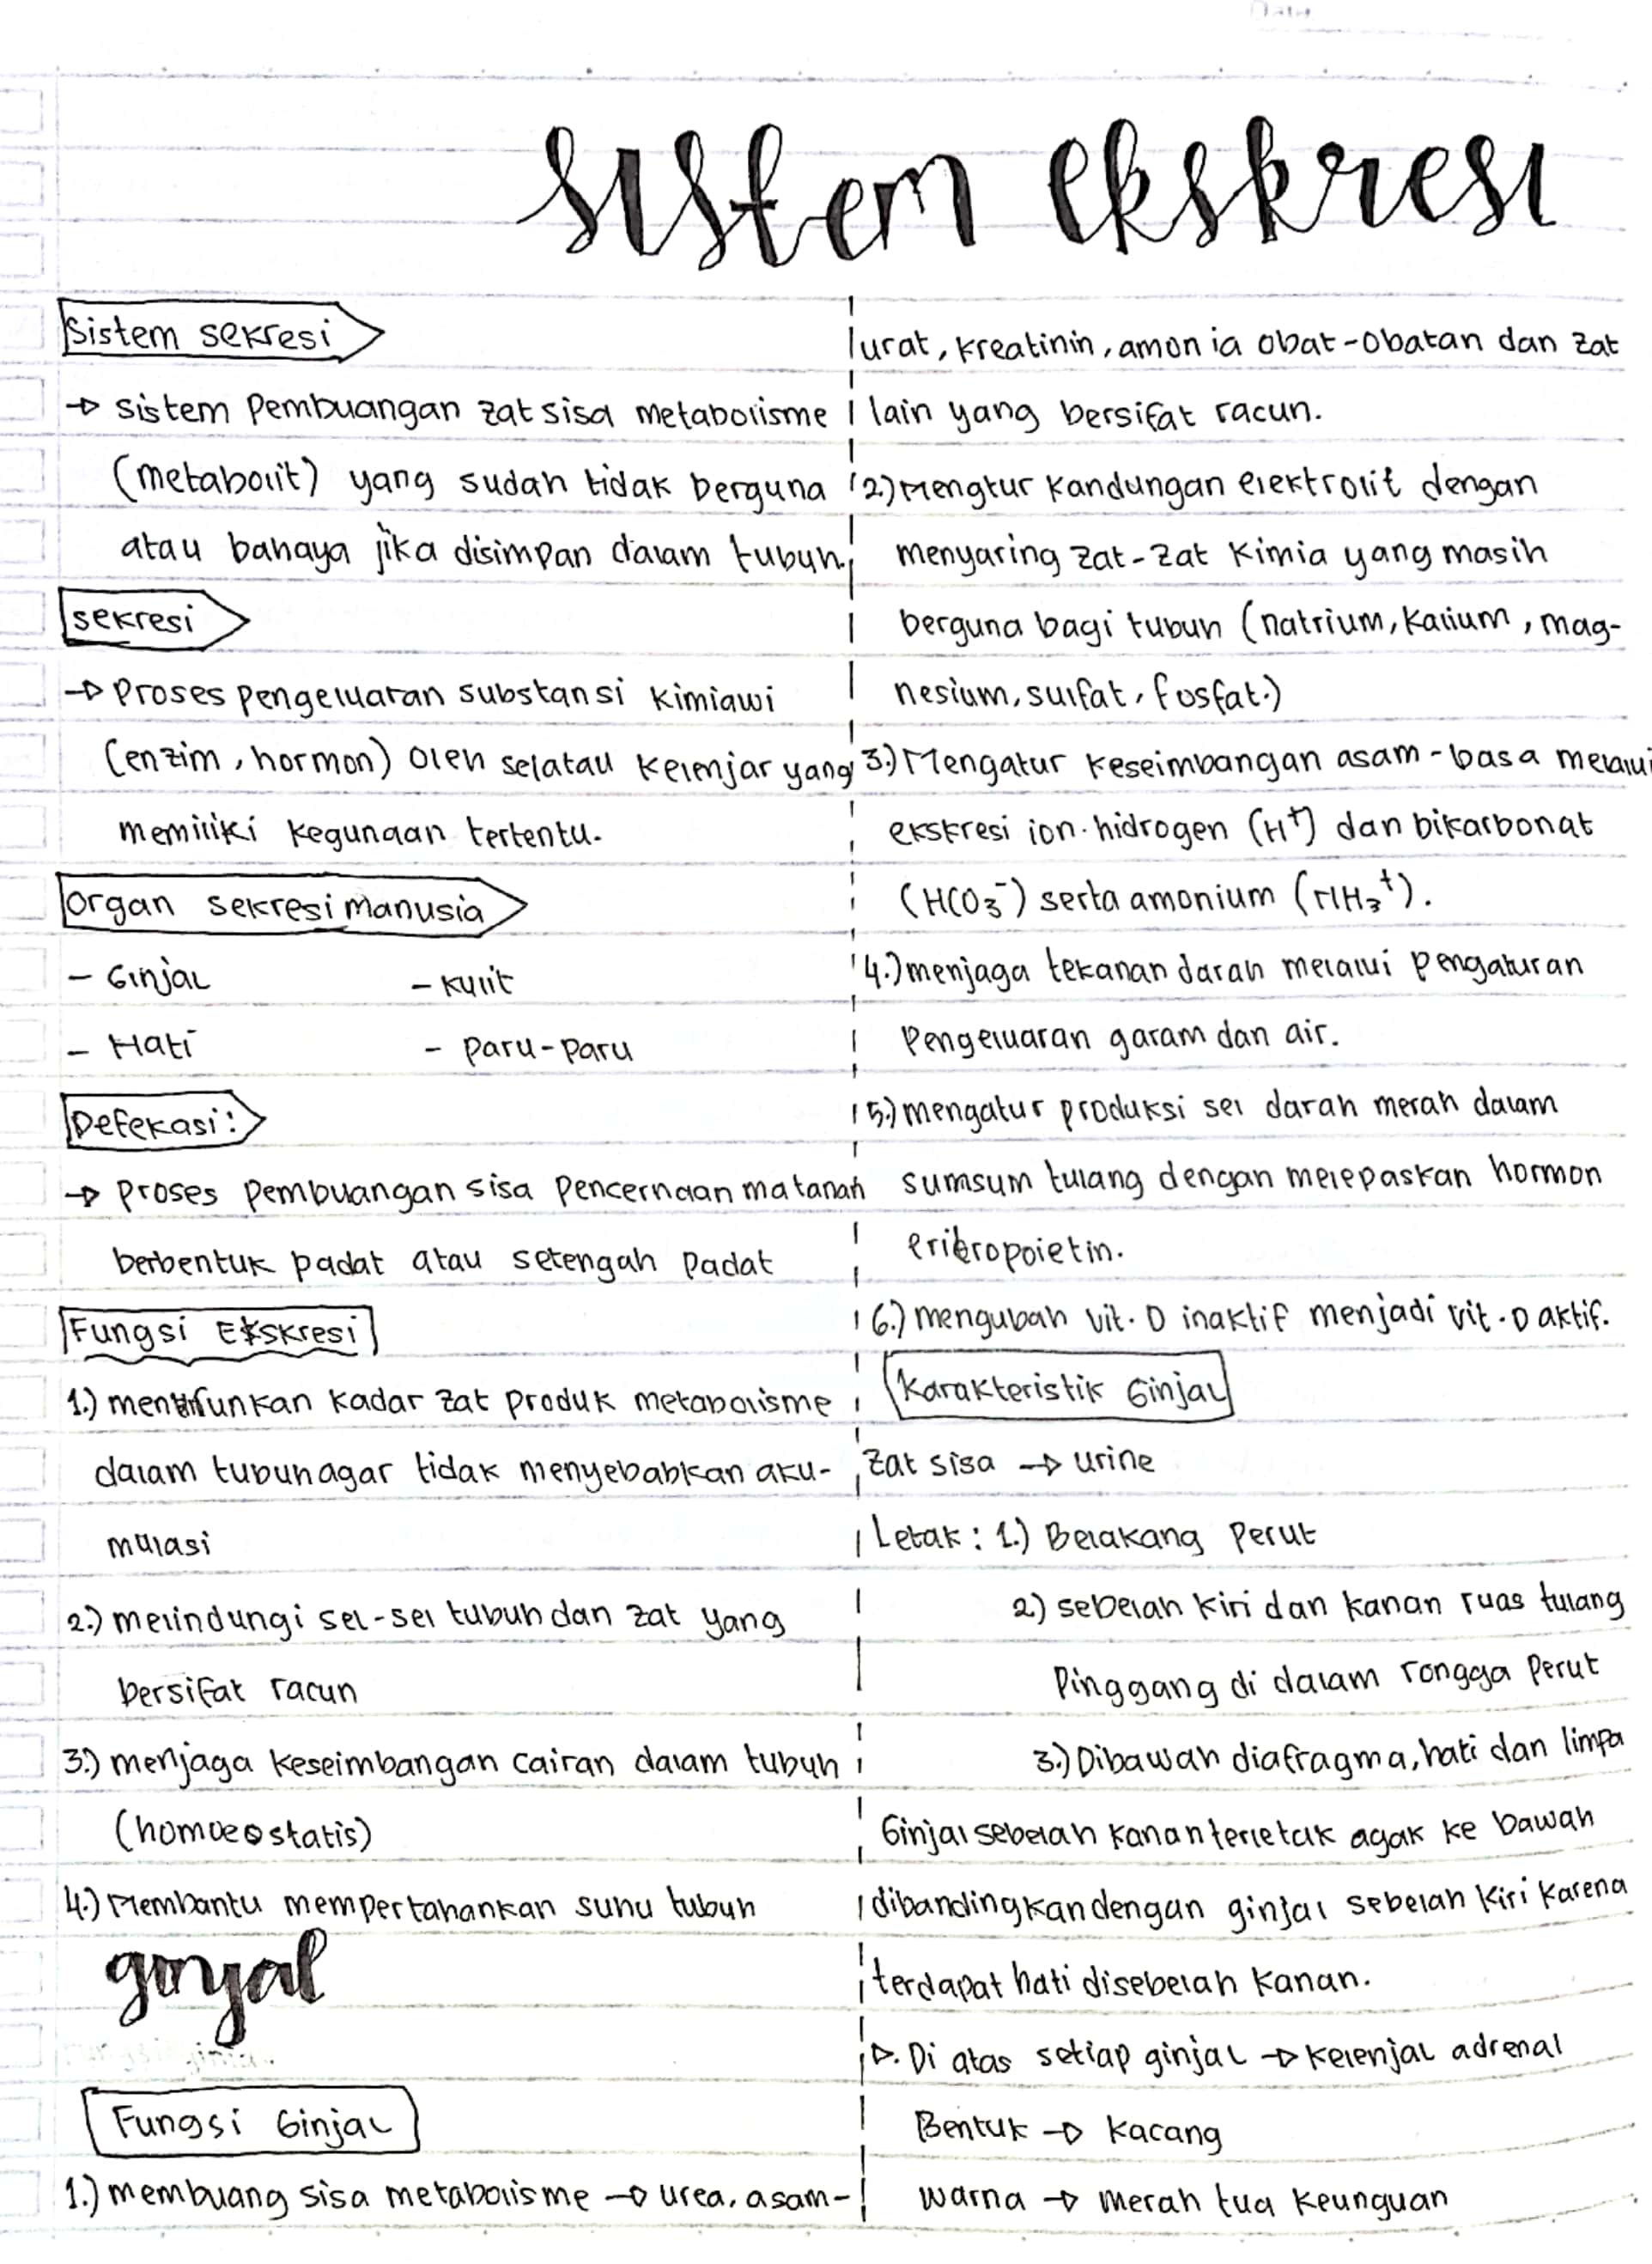 Date
sistem ekskresi
Sistem sekresi
→ sistem pembuangan zat sisa metabolisme
(metabolit) yang sudah tidak berguna
atau bahaya jika disimpan dalam tubuh.
sekresi
→ Proses pengeluaran substansi kimiawi
(enzim, hormon) oleh sel atau kelenjar yang
memiliki kegunaan tertentu.
Organ sekresi manusia
- Ginjal - Kulit
- Hati - Paru-paru
Defekasi:
→ proses pembuangan sisa pencernaan matanah
berbentuk padat atau setengah padat
Fungsi Ekskresi
1.) menurunkan kadar zat produk metabolisme
dalam tubuh agar tidak menyebabkan aku-
mulasi
2.) melindungi sel-sel tubuh dan zat yang
bersifat racun
3.) menjaga keseimbangan cairan dalam tubuh
(homoeostatis)
4.) Membantu mempertahankan suhu tubuh
ginjal
Fungsi Ginjal
1.) membuang sisa metabolisme → urea, asam-
urat, kreatinin, amonia obat-obatan dan zat
lain yang bersifat racun.
2.) Mengtur kandungan elektrolit dengan
menyaring zat-zat kimia yang masih
berguna bagi tubuh (natrium, kalium, mag-
nesium, sulfat, fosfat.)
3.) Mengatur keseimbangan asam-basa melalui
ekskresi ion hidrogen (H⁺) dan bikarbonat
(HCO₃⁻) serta amonium (NH₃⁺).
4.) menjaga tekanan darah melalui pengaturan
Pengeluaran garam dan air.
5.) mengatur produksi sel darah merah dalam
sumsum tulang dengan melepaskan hormon
eritropoietin.
6.) mengubah vit. D inaktif menjadi vit. D aktif.
Karakteristik Ginjal
Zat sisa → urine
Letak : 1.) Belakang Perut
2) sebelah kiri dan kanan ruas tulang
Pinggang di dalam rongga perut
3.) Dibawah diafragma, hati dan limpa
Ginjal sebelah kanan terletak agak ke bawah
dibandingkan dengan ginjal sebelah kiri karena
terdapat hati disebelah kanan.
▷. Di atas setiap ginjal → kelenjal adrenal
Bentuk → Kacang
Warna → Merah tua keunguan